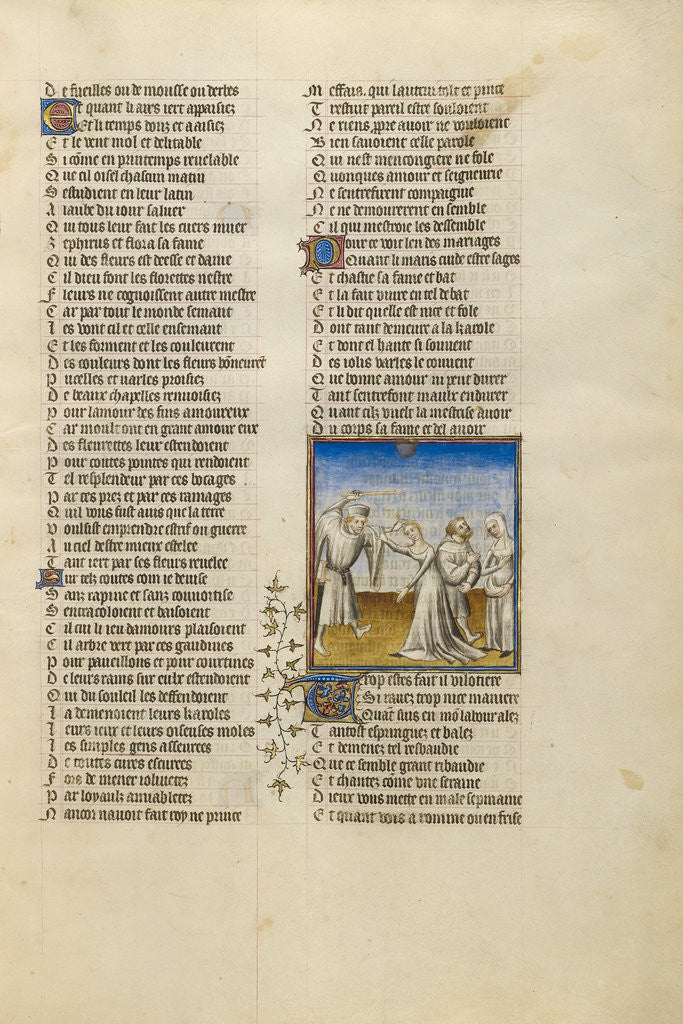 De fueilles ou de mousse ou derbes
Et quant li airs iert appaisiez
Et li temps douz et aaisiez
Et le vent mol et delitable
Si cōme en printemps revelable
Que cil oisel chascun matin
Sestudient en leur latin
A laube du iour saluer
Qui tous leur fait les cuers muer
Zephirus et flora sa fame
Qui des fleurs est deesse et dame
Cil dieu font les florettes nestre
Fleurs ne cognoissent autre mestre
Car par tout le monde semant
Les vont cil et celle ensemant
Et les forment et les couleurent
Des couleurs dont les fleurs hōneurent
Pucelles et varles proisiez
De beaux chapelles renvoisiez
Pour lamour des fins amoureux
Car moult ont en grant amour eux
Des fleurettes leur estendoient
Pour coutes pointes qui rendoient
Tel resplendeur par ces bocages
Par ces prez et par ces ramages
Quil vous fust avis que la terre
Voulsist emprendre estrif ou guerre
Au ciel destre mieux estelee
Tant iert par ses fleurs revelee
Sur telz coutes com ie devise
Sanz rapine et sanz couvoitise
Sentracoloient et baisoient
Cil cui li ieu damours plaisoient
Cil arbre vert par ces gaudines
Pour paveillons et pour courtines
De leurs rains sur eulx estendoient
Qui du souleil les deffendoient
La demenoient leurs karoles
Leurs ieux et leurs oiseuses moles
Les simples gens asseurees
De toutes cures escurees
Fors de mener ioliuetez
Par loyaulx amiabletez
Nancor navoit fait roy ne prince
Meffais, qui lautrui tolt et pince
Trestuit pareil estre souloient
Ne riens ppre avoir ne vouloient
Bien savoient celle parole
Qui nest mencongiere ne fole
Quonques amour et seigneurie
Ne sentrefirent compaignie
Ne ne demourerent en semble
Cil qui mestroie les dessemble
Pour ce voit len des mariages
Quant li maris cuide estre sages
Et chastie sa fame et bat
Et la fait vivre en tel debat
Et li dit quelle est nice et fole
Dont tant demeure a la karole
Et dont el hante si souvent
Des iolis varles le couvent
Que bonne amour ni peut durer
Tant sentrefont maulx endurer
Quant cilz vuelt la mestrise avoir
Du corps sa fame et del avoir
Trop estes fait il vilotiere
Si ravez trop nice maniere
Quāt suis en mō labour alez
Tantost espringuez et balez
Et demenez tel resbaudie
Que ce semble grant ribaudie
Et chantez cōme une seraine
Dieux vous mette en male sepmaine
Et quant vois a romme ou en frise